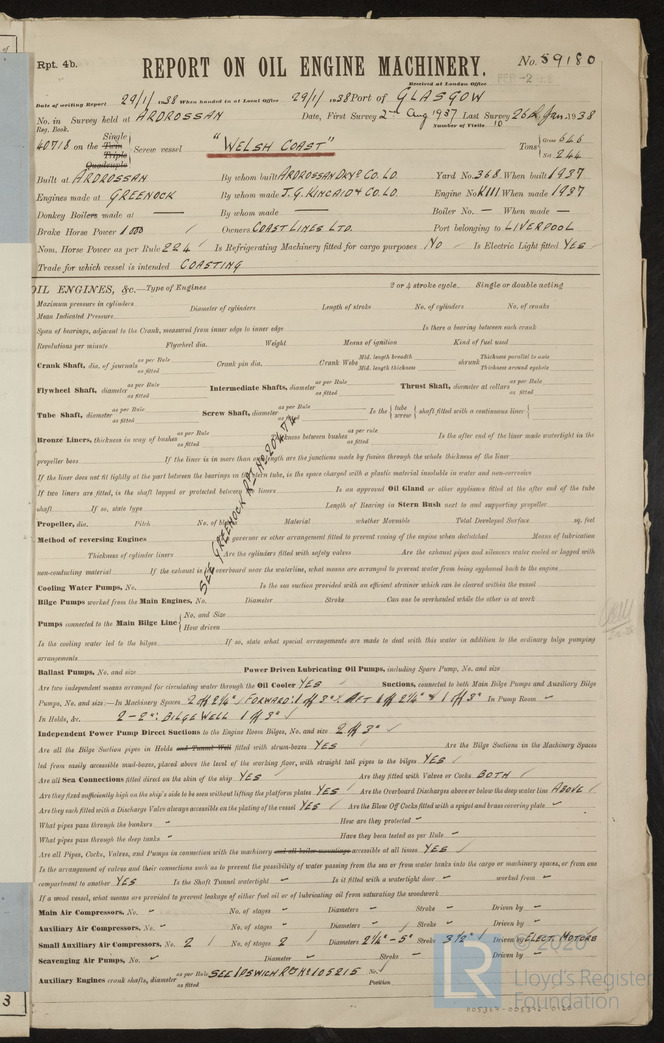 Rpt. 4b.
REPORT ON OIL ENGINE MACHINERY.
No. 59180
Received at London Office
FEB -2
Date of writing Report 29/1/1938 When handed in at Local Office 29/1/1938 Port of GLASGOW
No. in Survey held at ARDROSSAN Date, First Survey 2nd Aug 1937 Last Survey 26th Jan. 1938
Reg. Book. Number of Visits 10
40718 on the Single Twin Triple Quadruple Screw vessel "WELSH COAST" Tons Gross 646 Net 244
Built at ARDROSSAN By whom built ARDROSSAN DKYD CO. LD. Yard No. 368 When built 1937
Engines made at GREENOCK By whom made J. G. KINCAID & CO. LD. Engine No. K111 When made 1937
Donkey Boilers made at — By whom made — Boiler No. — When made —
Brake Horse Power 1000 Owners COAST LINES LTD. Port belonging to LIVERPOOL
Nom. Horse Power as per Rule 224 Is Refrigerating Machinery fitted for cargo purposes NO Is Electric Light fitted YES
Trade for which vessel is intended COASTING
OIL ENGINES, &c.—Type of Engines 2 or 4 stroke cycle Single or double acting
Maximum pressure in cylinders Diameter of cylinders Length of stroke No. of cylinders No. of cranks
Mean Indicated Pressure
Span of bearings, adjacent to the Crank, measured from inner edge to inner edge Is there a bearing between each crank
Revolutions per minute Flywheel dia. Weight Means of ignition Kind of fuel used
Crank Shaft, dia. of journals as per Rule as fitted Crank pin dia. Crank Webs Mid. length breadth Mid. length thickness shrunk Thickness parallel to axis Thickness around eyehole
Flywheel Shaft, diameter as per Rule as fitted Intermediate Shafts, diameter as per Rule as fitted Thrust Shaft, diameter at collars as per Rule as fitted
Tube Shaft, diameter as per Rule as fitted Screw Shaft, diameter as per Rule as fitted Is the tube screw shaft fitted with a continuous liner
Bronze Liners, thickness in way of bushes as per Rule as fitted Thickness between bushes as per rule as fitted Is the after end of the liner made watertight in the
propeller boss If the liner is in more than one length are the junctions made by fusion through the whole thickness of the liner
If the liner does not fit tightly at the part between the bearings in the stern tube, is the space charged with a plastic material insoluble in water and non-corrosive
If two liners are fitted, is the shaft lapped or protected between the liners Is an approved Oil Gland or other appliance fitted at the after end of the tube
shaft If so, state type Length of Bearing in Stern Bush next to and supporting propeller
Propeller, dia. Pitch No. of blades Material whether Moveable Total Developed Surface sq. feet
Method of reversing Engines Is a governor or other arrangement fitted to prevent racing of the engine when declutched Means of lubrication
Thickness of cylinder liners Are the cylinders fitted with safety valves Are the exhaust pipes and silencers water cooled or lagged with
non-conducting material If the exhaust is led overboard near the waterline, what means are arranged to prevent water from being syphoned back to the engine
SEE GREENOCK RPT No. 20474
Cooling Water Pumps, No. Is the sea suction provided with an efficient strainer which can be cleared within the vessel
Bilge Pumps worked from the Main Engines, No. Diameter Stroke Can one be overhauled while the other is at work
Pumps connected to the Main Bilge Line No. and Size How driven
Is the cooling water led to the bilges If so, state what special arrangements are made to deal with this water in addition to the ordinary bilge pumping
arrangements
Ballast Pumps, No. and size Power Driven Lubricating Oil Pumps, including Spare Pump, No. and size
Are two independent means arranged for circulating water through the Oil Cooler YES Suctions, connected to both Main Bilge Pumps and Auxiliary Bilge
Pumps, No. and size:—In Machinery Spaces 2 off 2¼" FORWARD: 1 off 3": AFT 1 off 2¼" & 1 off 3" In Pump Room -
In Holds, &c. 2 - 2": BILGE WELL 1 off 3"
Independent Power Pump Direct Suctions to the Engine Room Bilges, No. and size 2 off 3"
Are all the Bilge Suction pipes in Holds and Tunnel Well fitted with strum-boxes YES Are the Bilge Suctions in the Machinery Spaces
led from easily accessible mud-boxes, placed above the level of the working floor, with straight tail pipes to the bilges YES
Are all Sea Connections fitted direct on the skin of the ship YES Are they fitted with Valves or Cocks BOTH
Are they fixed sufficiently high on the ship's side to be seen without lifting the platform plates YES Are the Overboard Discharges above or below the deep water line ABOVE
Are they each fitted with a Discharge Valve always accessible on the plating of the vessel YES Are the Blow Off Cocks fitted with a spigot and brass covering plate -
What pipes pass through the bunkers - How are they protected -
What pipes pass through the deep tanks - Have they been tested as per Rule -
Are all Pipes, Cocks, Valves, and Pumps in connection with the machinery and all boiler mountings accessible at all times YES
Is the arrangement of valves and their connections such as to prevent the possibility of water passing from the sea or from water tanks into the cargo or machinery spaces, or from one
compartment to another YES Is the Shaft Tunnel watertight - Is it fitted with a watertight door - worked from -
If a wood vessel, what means are provided to prevent leakage of either fuel oil or of lubricating oil from saturating the woodwork
Main Air Compressors, No. - No. of stages - Diameters - Stroke - Driven by -
Auxiliary Air Compressors, No. - No. of stages - Diameters - Stroke - Driven by -
Small Auxiliary Air Compressors, No. 2 No. of stages 2 Diameters 2¼" - 5" Stroke 3½" Driven by ELECT. MOTORS
Scavenging Air Pumps, No. - Diameter - Stroke - Driven by -
Auxiliary Engines crank shafts, diameter as per Rule as fitted SEE IPSWICH RPT No 105215 No. Position
© 2020
LR
Lloyd's Register
Foundation
3